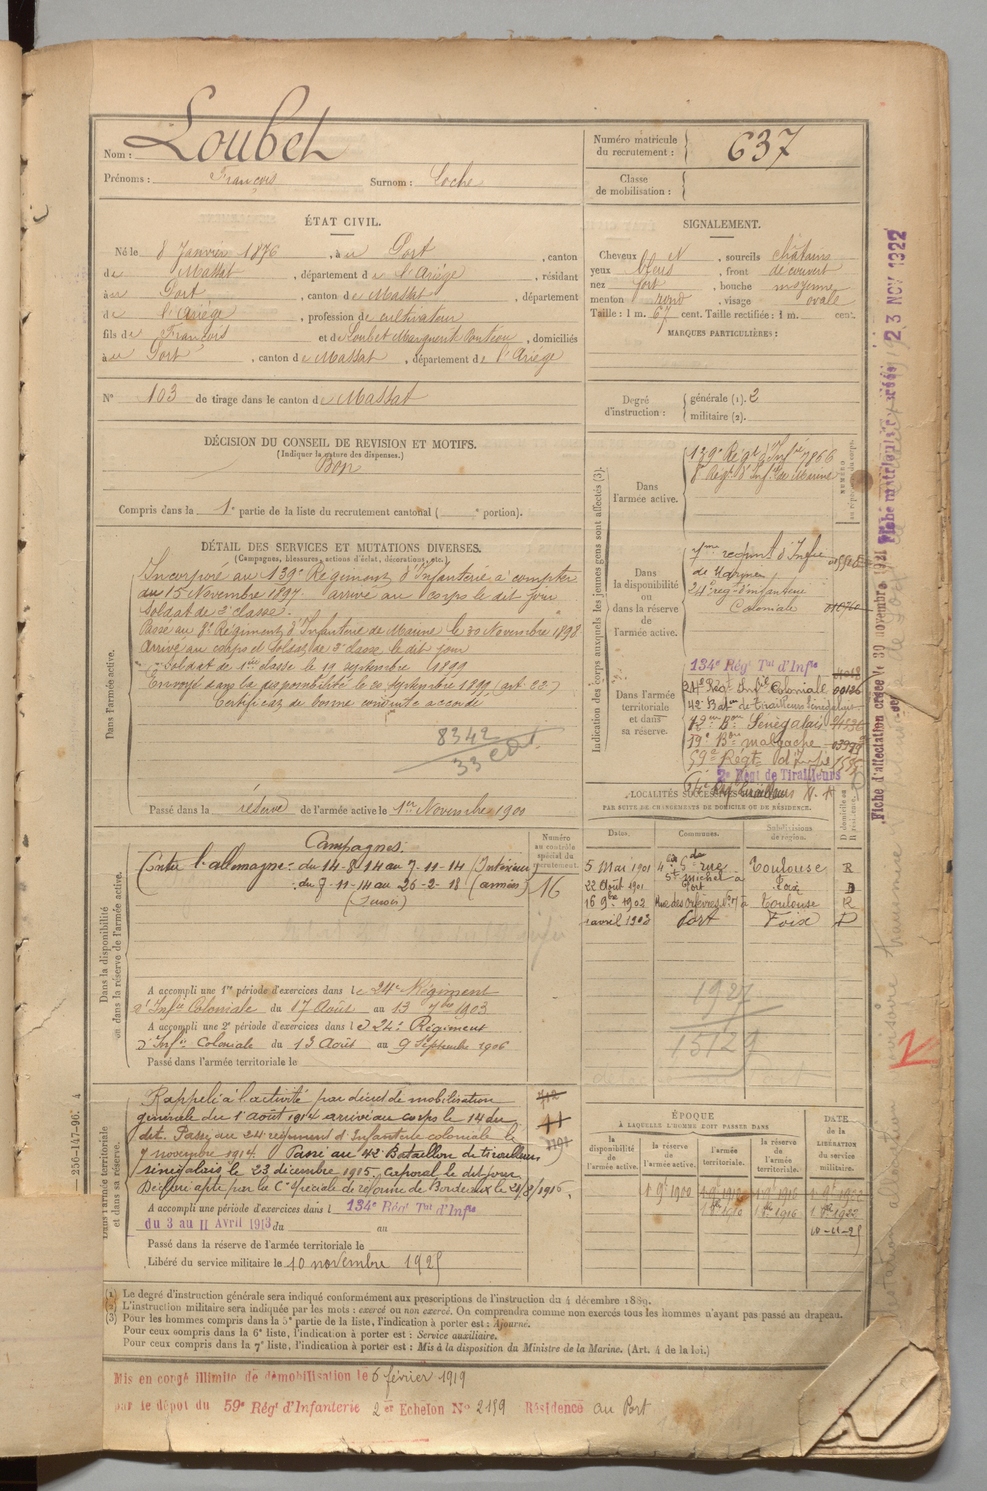 Nom : Loubet
Prénoms : François Surnom : Loche
Numéro matricule du recrutement : 637
Classe de mobilisation :
ÉTAT CIVIL.
Né le 8 Janvier 1876, à u Port, canton
de Massat, département de l'Ariège, résidant
à u Port, canton de Massat, département
de l'Ariège, profession de cultivateur
fils de François et de Loubet Marguerite Ponteou, domiciliés
à u Port, canton de Massat, département de l'Ariège
N° 103 de tirage dans le canton de Massat
SIGNALEMENT.
Cheveux et sourcils châtains
yeux bleus, front découvert
nez fort, bouche moyenne
menton rond, visage ovale
Taille : 1 m. 67 cent. Taille rectifiée : 1 m. cent.
MARQUES PARTICULIÈRES :
Degré d'instruction : générale (1). 2
militaire (2).
DÉCISION DU CONSEIL DE REVISION ET MOTIFS.
(Indiquer la nature des dispenses.)
Bon
Compris dans la 1e partie de la liste du recrutement cantonal ( e portion).
DÉTAIL DES SERVICES ET MUTATIONS DIVERSES.
(Campagnes, blessures, actions d'éclat, décorations, etc.)
Dans l'armée active.
Incorporé au 139e Régiment d'Infanterie à compter
du 15 Novembre 1897. arrivé au corps le dit jour
Soldat de 2e classe.
Passé au 8e Régiment d'Infanterie de Marine le 30 Novembre 1898
Arrivé au corps et Soldat de 2e classe le dit jour
Soldat de 1ère classe le 19 septembre 1899
Envoyé dans la disponibilité le 20 septembre 1899 (art. 23)
Certificat de bonne conduite accordé
8342
33 col.
Passé dans la réserve de l'armée active le 1er Novembre 1900
Indication des corps auxquels les jeunes gens sont affectés (3).
Dans l'armée active.
139e Régt d'Infie 1866
8e Régt d'Infie de Marine
Dans la disponibilité ou dans la réserve de l'armée active.
de Marine
24e régt d'infanterie
Coloniale
Dans l'armée territoriale et dans sa réserve.
134e Régt Tal d'Infie
24e Régt Infie Coloniale 00126
42e Batn de Tirailleurs Sénégalais
72me Bon Sénégalais
39e Bon malgache
59e Régt d'Infie
2e Régt de Tirailleurs
LOCALITÉS SUCCESSIVES
PAR SUITE DE CHANGEMENTS DE DOMICILE OU DE RÉSIDENCE.
Dates. Communes. Subdivisions de région. D domicile ou R résidence.
5 Mai 1901 rue St Michel à Toulouse R
22 Août 1901 Port Foix D
16 9bre 1902 Rue des Orfèvres à Toulouse R
1 avril 1903 Port Foix D
1927
15129
Dans la disponibilité ou dans la réserve de l'armée active.
Numéro au contrôle spécial du recrutement.
Campagnes:
Contre l'allemagne : du 14-8-14 au 7-11-14 (Intérieur)
du 7-11-14 au 26-2-18 (armées)
16
A accompli une 1re période d'exercices dans le 24e Régiment
d'Infie Coloniale du 17 Août au 13 7bre 1903
A accompli une 2e période d'exercices dans le 24e Régiment
d'Infie Coloniale du 13 Août au 9 Septembre 1906
Passé dans l'armée territoriale le
Dans l'armée territoriale et dans sa réserve.
Rappelé à l'activité par décret de mobilisation
générale du 1 août 1914 arrivé au corps le 14 du
dit. Passé au 24e régiment d'Infanterie coloniale le
7 novembre 1914. Passé au 42e Bataillon de tirailleurs
sénégalais le 23 décembre 1915. Caporal le dit jour
Déclaré apte par la Con spéciale de réforme de Bordeaux le 21/8/1916.
A accompli une période d'exercices dans l 134e Régt Tal d'Infie
du 3 au 11 Avril 1913 du au
Passé dans la réserve de l'armée territoriale le
Libéré du service militaire le 10 novembre 1925
ÉPOQUE
À LAQUELLE L'HOMME DOIT PASSER DANS
DATE de la LIBÉRATION du service militaire.
la disponibilité de l'armée active. la réserve de l'armée active. l'armée territoriale. la réserve de l'armée territoriale.
1 9bre 1900 1 9bre 1910 1 9bre 1916 1 9bre 1922
1 8bre 1910 1 8bre 1916 1 8bre 1922
10-11-25
(1) Le degré d'instruction générale sera indiqué conformément aux prescriptions de l'instruction du 4 décembre 1889.
(2) L'instruction militaire sera indiquée par les mots : exercé ou non exercé. On comprendra comme non exercés tous les hommes n'ayant pas passé au drapeau.
(3) Pour les hommes compris dans la 5e partie de la liste, l'indication à porter est : Ajourné.
Pour ceux compris dans la 6e liste, l'indication à porter est : Service auxiliaire.
Pour ceux compris dans la 7e liste, l'indication à porter est : Mis à la disposition du Ministre de la Marine. (Art. 4 de la loi.)
Mis en congé illimité de démobilisation le 6 février 1919
par le dépôt du 59e Régt d'Infanterie 2er Echelon No 2159 Résidence au Port
Fiche d'affectation créée le 30 novembre 1921
Fiche matricule créée le 23 NOV 1922